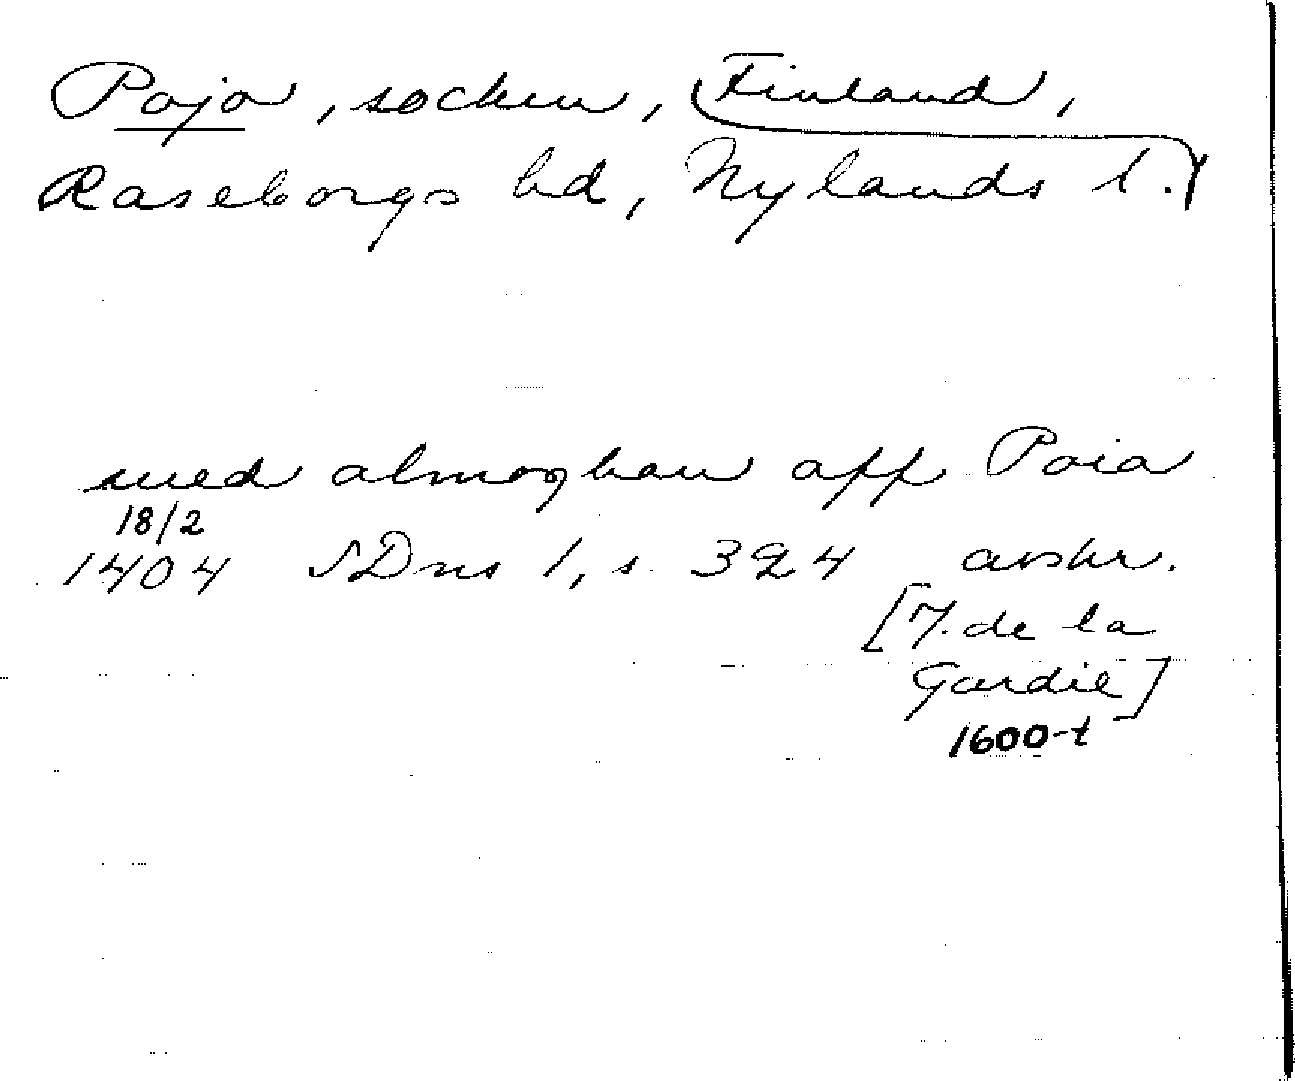 Pojo, socken, Finland,
Raseborgs hd, Nylands l.
med almoghan aff Poia
18/2
1404 SDns 1, s. 324 avskr.
[J. de la
Gardie]
1600-t